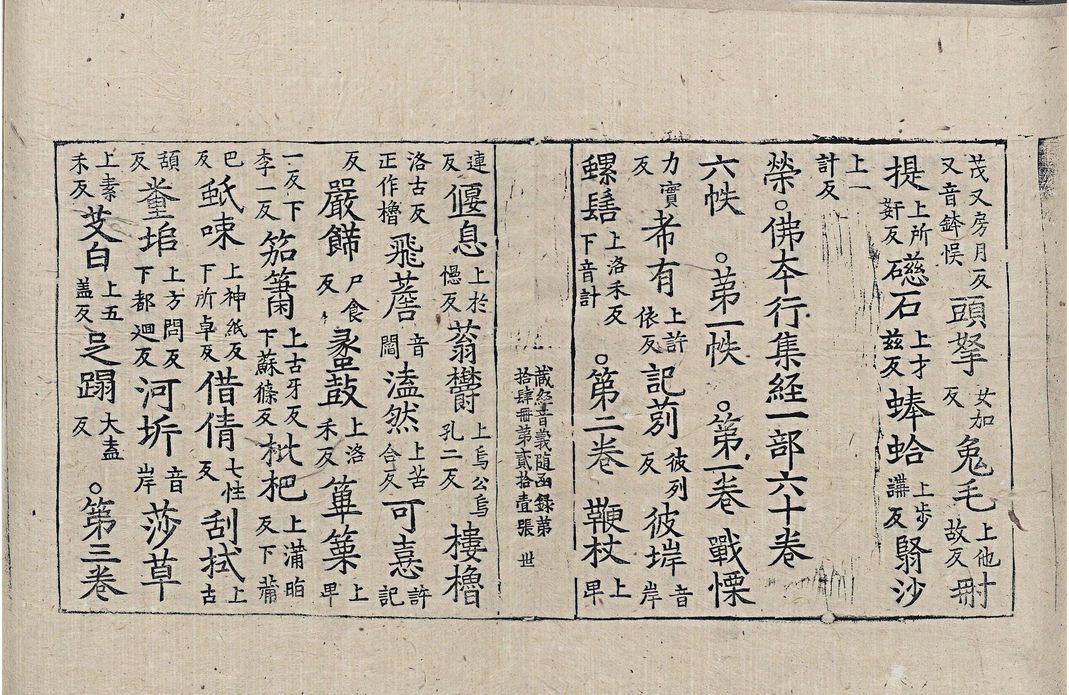 茂又房月反又音鉢悮頭拏女加反兔毛上他故反𠕋
提上所𡚶反礠石上才玆反蜯蛤上步講反翳沙
上一計反
榮○佛夲行集経一部六十卷
六帙○苐一帙○苐一卷戰慄
力實反希有上許依反記莂彼列反彼㟁音岸
螺髻上洛禾反下音計○苐二卷鞭杖上𤰞
藏経音義随函録苐拾肆冊苐貳拾壹張世
連反偃息上於幰反蓊欝上烏公烏孔二反樓櫓
洛古反正作櫓飛簷音閻溘然上苦合反可憙許記
反嚴餙尸食反蠡鼓上洛禾反篳篥上𤰞
一反下李一反笳簫上古牙反下蘇條反枇杷上蒲脂反下蒲
巴反舐㖒上神紙反下所卓反借倩七性反刮拭上古
頡反糞塠上方問反下都迴反河㘰音岸莎草
上素禾反艾白上五盖反足蹋大盍反○苐三卷